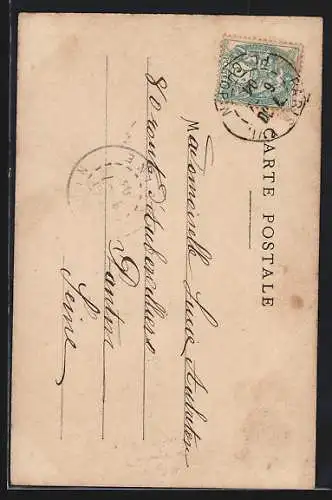 CARTE POSTALE
Mademoiselle Lucie
80 route d'Aubervilliers
Pantin
Seine